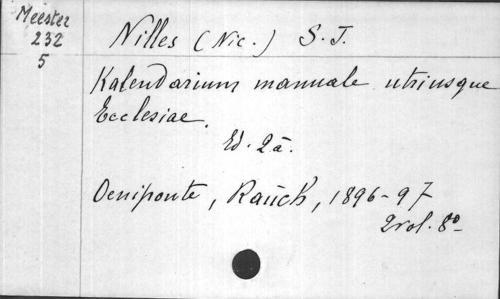 Meester
232
5
Nilles (Nic.) S. J.
Kalendarium manuale utriusque
Ecclesiae.
Ed. 2ā.
Oeniponte, Rauch, 1896-97
2 vol. 8º